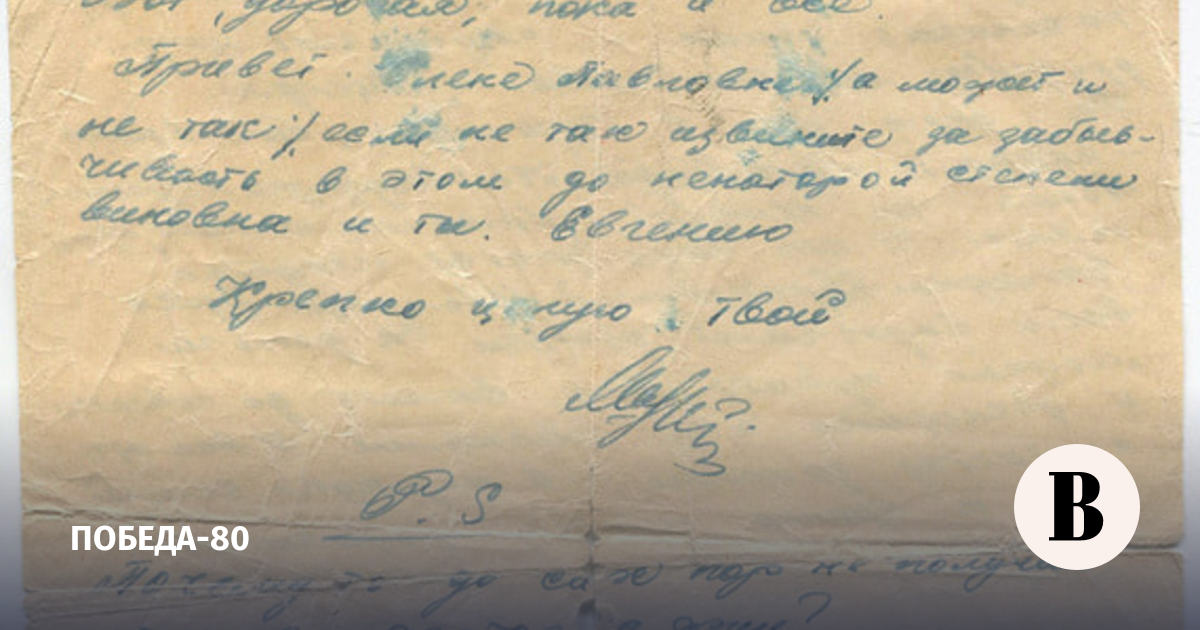 дорогая, пока и все.
Привет. Елене Павловне /а может и
не так/ если не так извините за забыв-
чивость в этом до некоторой степени
виновна и ты. Евгению
Крепко целую твой
P.S
Почему то до сих пор не получ
ПОБЕДА-80
В